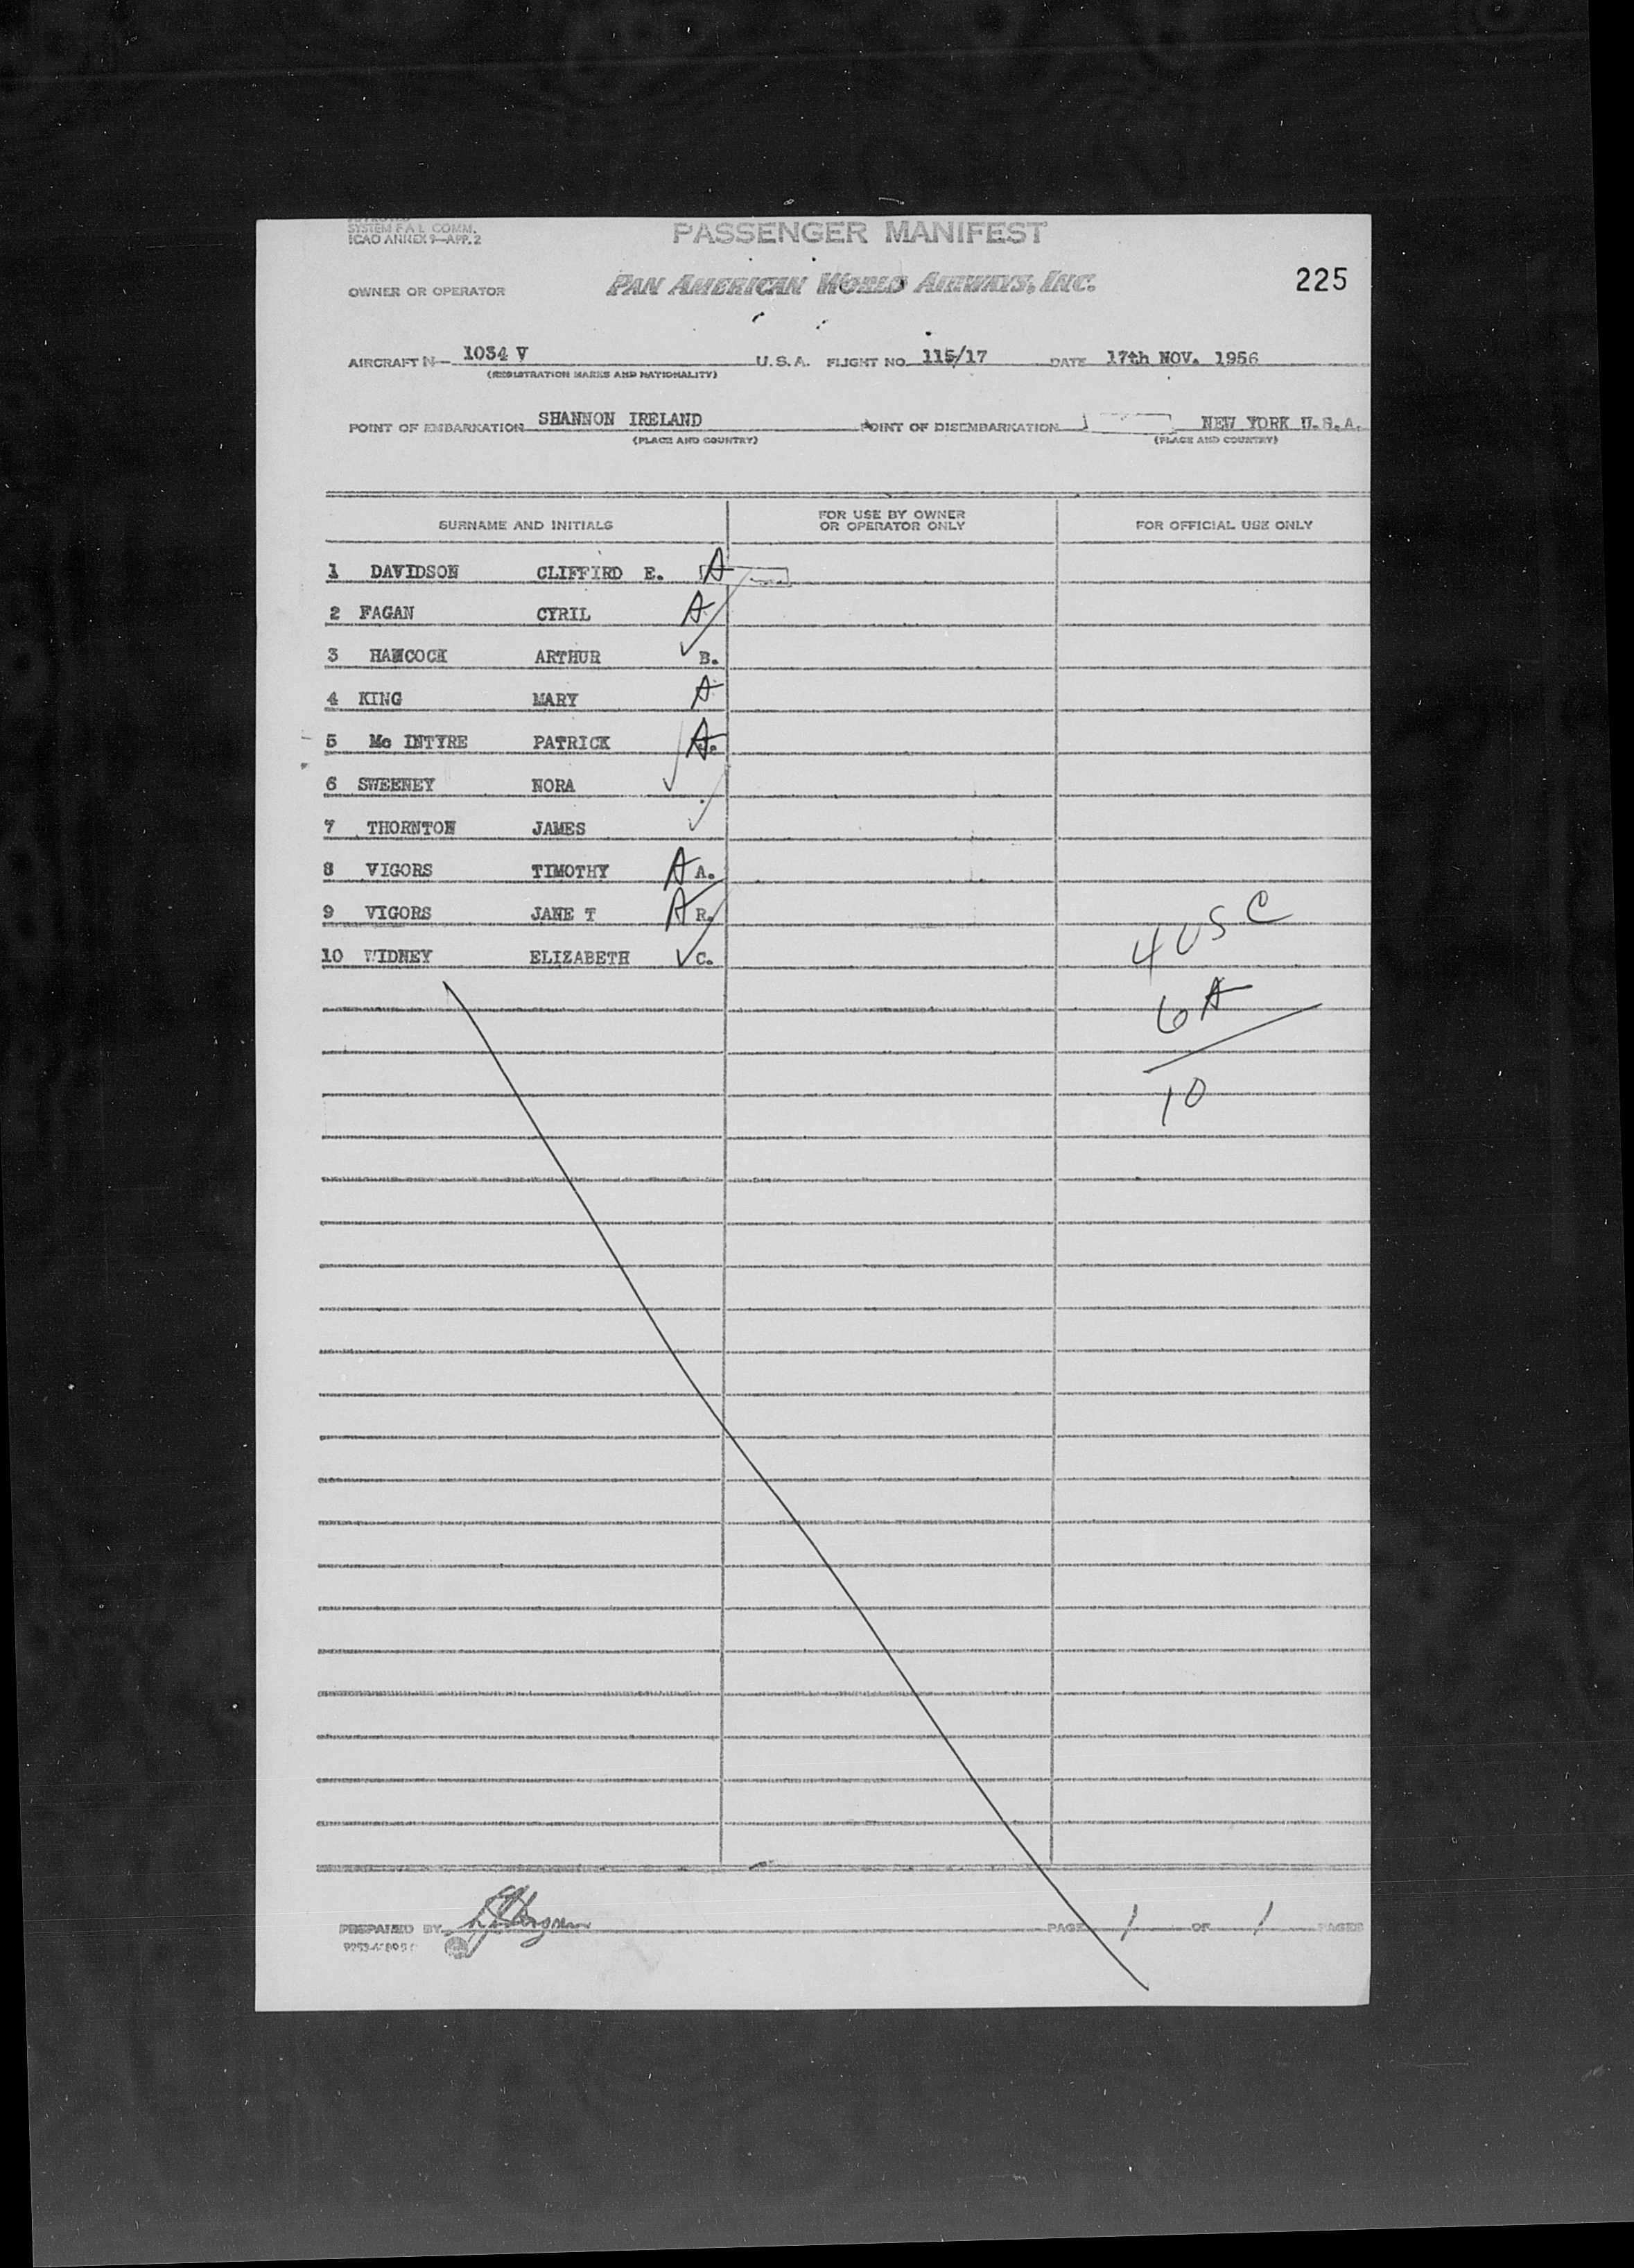 SYSTEM F.A.L. COMM.
ICAO ANNEX 9—APP. 2
PASSENGER MANIFEST
OWNER OR OPERATOR PAN AMERICAN WORLD AIRWAYS, INC. 225
AIRCRAFT N— 1034 V U.S.A. FLIGHT NO. 115/17 DATE 17th NOV. 1956
(REGISTRATION MARKS AND NATIONALITY)
POINT OF EMBARKATION SHANNON IRELAND POINT OF DISEMBARKATION NEW YORK U.S.A.
(PLACE AND COUNTRY) (PLACE AND COUNTRY)
SURNAME AND INITIALS FOR USE BY OWNER OR OPERATOR ONLY FOR OFFICIAL USE ONLY
1 DAVIDSON CLIFFIRD E. A
2 FAGAN CYRIL A
3 HANCOCK ARTHUR ✓ B.
4 KING MARY A
5 Mc INTYRE PATRICK A
6 SWEENEY NORA ✓
7 THORNTON JAMES ✓
8 VIGORS TIMOTHY A A.
9 VIGORS JANE T A R.
10 WIDNEY ELIZABETH ✓ C.
4 USC
6 A
10
PREPARED BY PAGE 1 OF 1 PAGES